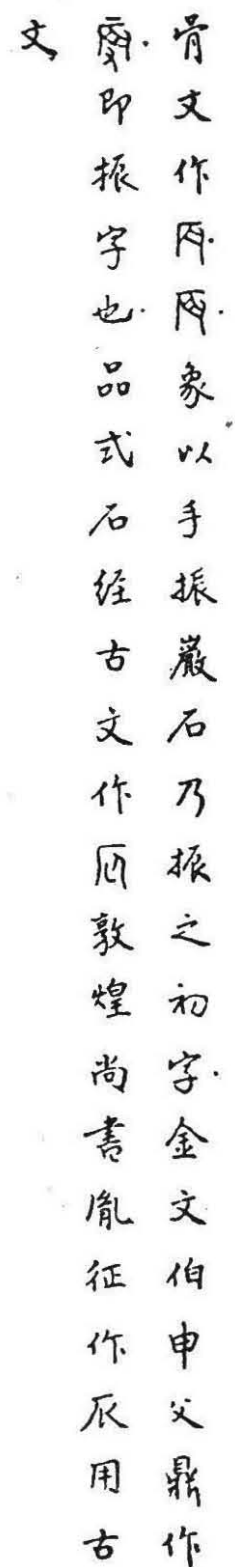 骨文作象以手振巖石乃振之初字金文伯申父鼎作
即振字也品式石經古文作敦煌尚書胤征作辰用古
文